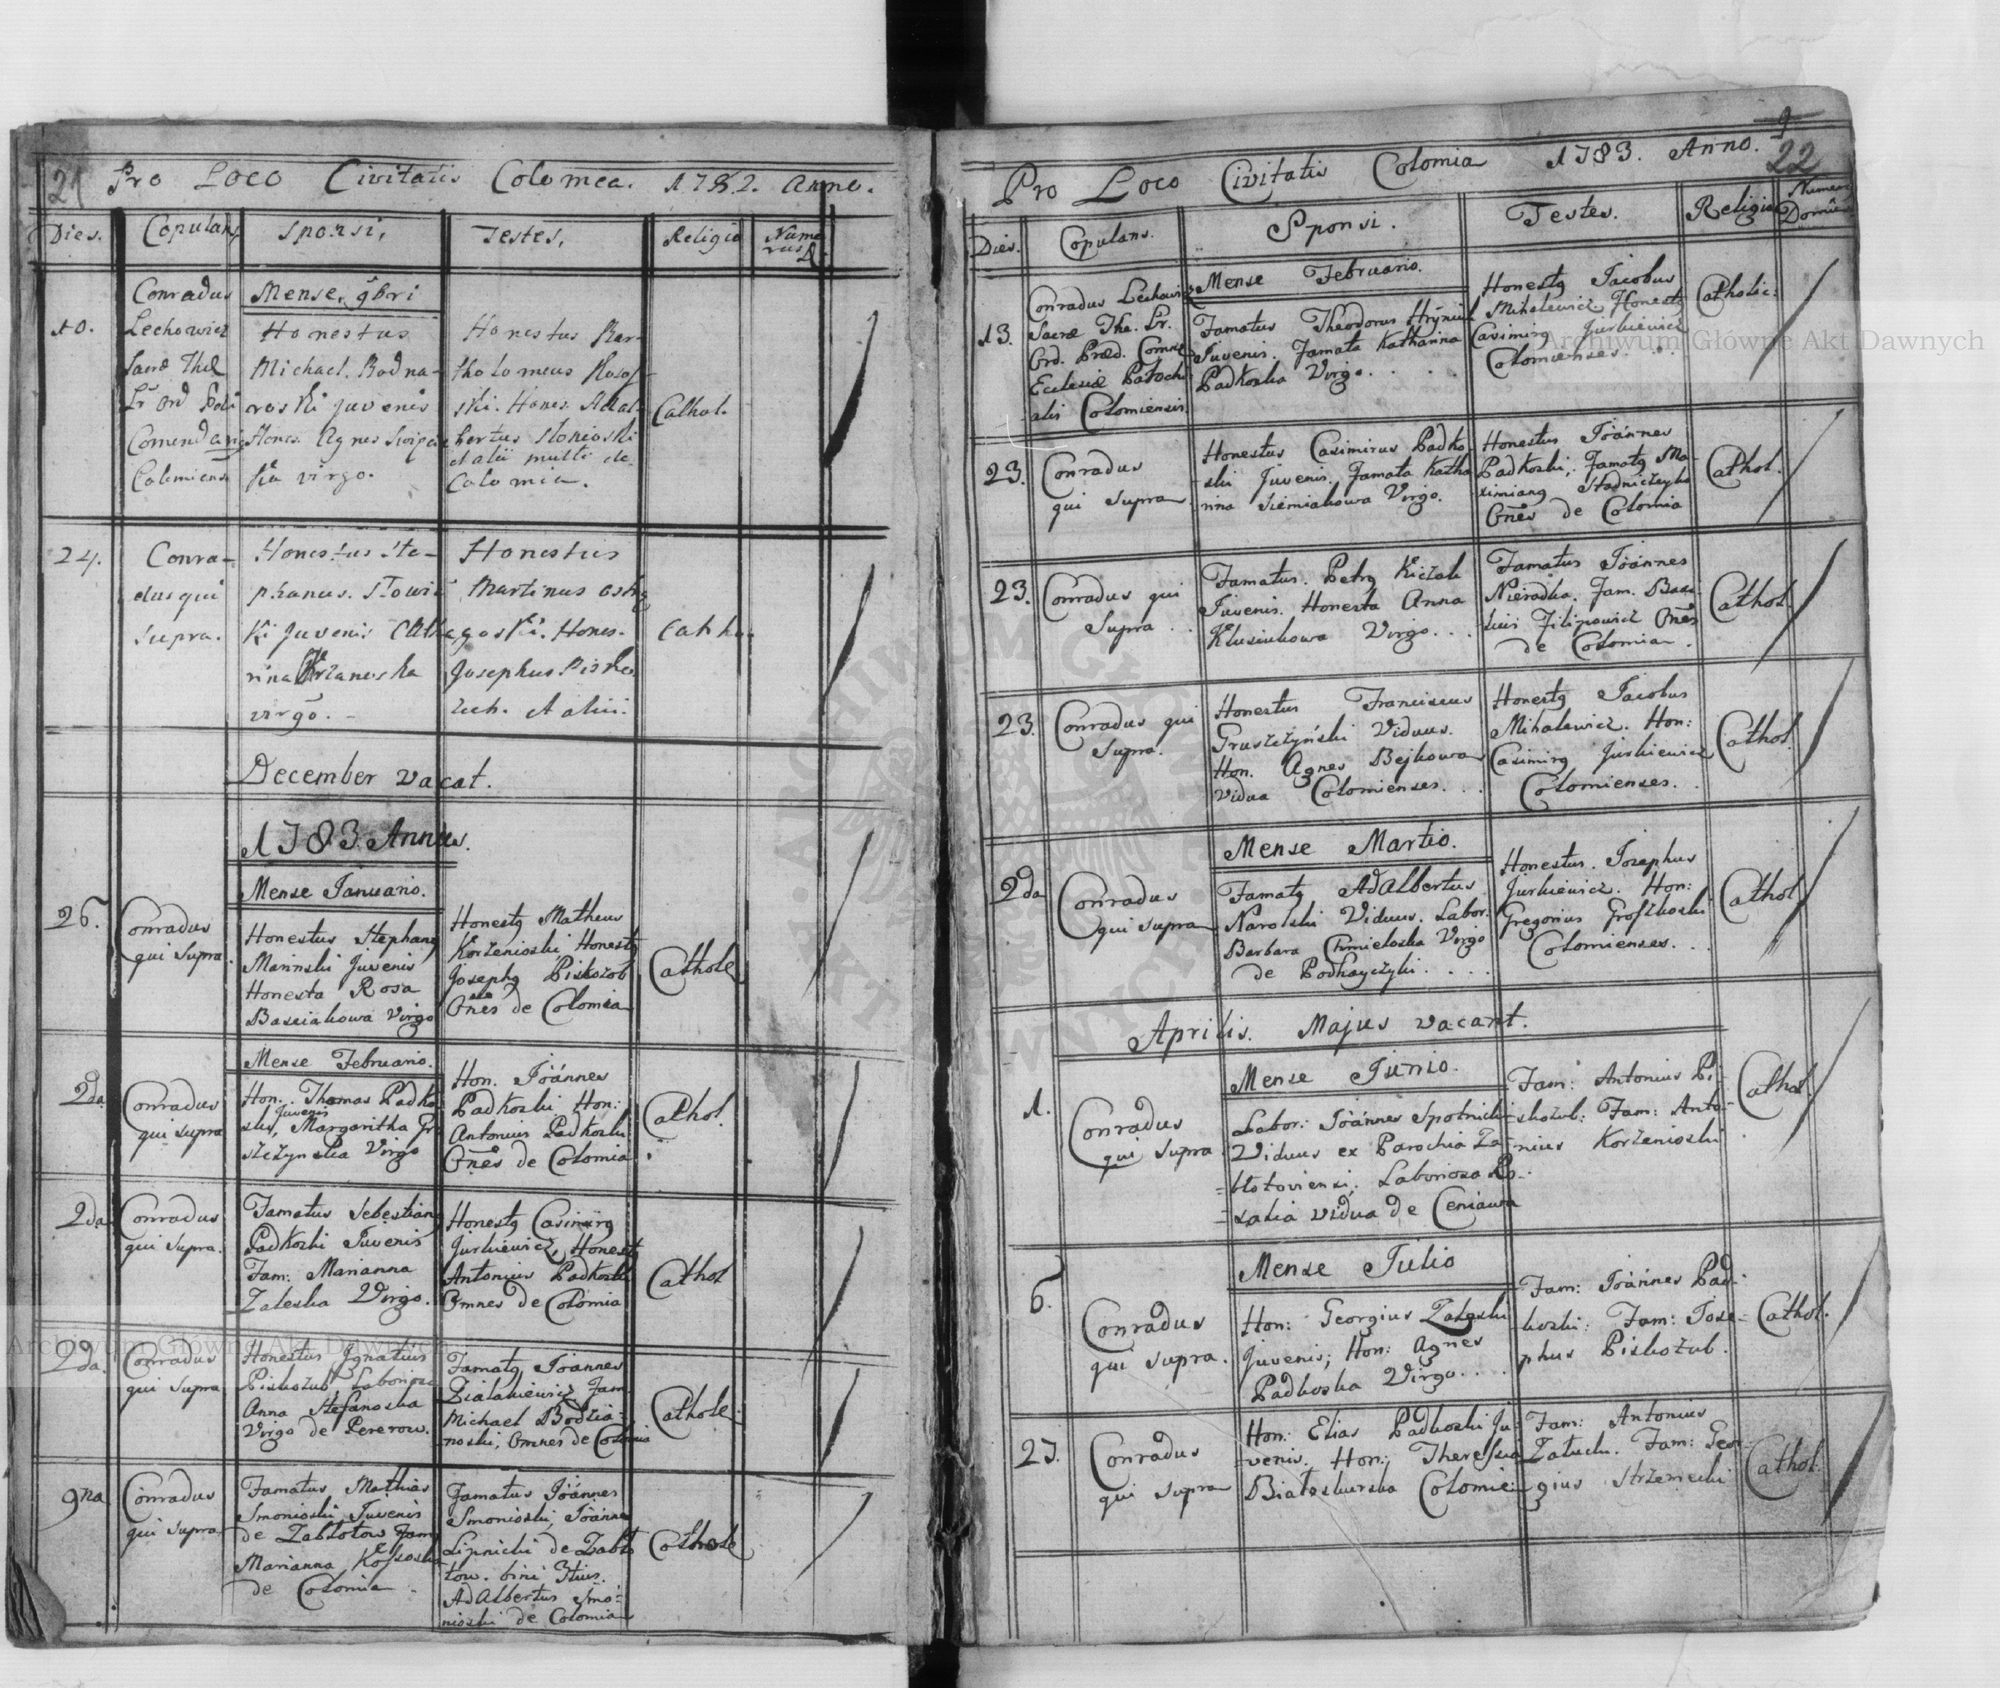 21 Pro Loco Civitatis Colomea. 1782. Anno.
Dies. Copulans Sponsi, Testes, Religio Nume
rus D.
Conradus
Lechowicz
Sacrae Thel
Lr Ord Prdi
Comendarig
Colomiens
Mense, 9bri
10.
Honestus
Michael. Bodna-
roski juvenis
Hones. Agnes
ka virgo.
Honestus Bar-
tholomeus Rosos-
ski. Hones. Adal-
bertus Stonioski
et alii multi de
Colomia.
Cathol.
24.
Conra-
dus qui
supra.
Honestus Ste-
phanus.
ki juvenis Cathe
rina Krzanoska
virgo. -
Honestus
Martinus
goski. Hones.
Josephus Pisko
zub. et alii.
Catho.
December vacat.
1783. Annus.
Mense Januario.
26.
Conradus
qui supra.
Honestus Stephang
Marinski juvenis
Honesta Rosa
Basciakowa Virgo
Honestg Matheus
Korżenioski, Honestg
Josephg Piskożub
Oñes de Colomia
Cathole
Mense Februario.
2da
Conradus
qui supra
Hon. Thomas Padko
ski, juvenis Margaritha Gru
szczynska Virgo
Hon. Joánnes
Padkoski Hon:
Antonius Padkoski
Oñes de Colomia
Cathol.
2da
Conradus
qui supra.
Famatus Sebestiang
Padkoski Juvenis
Fam: Marianna
Zaleska Virgo.
Honestg Casimirg
Jurkiewicz, Honestg
Antonius Padkoski
Omnes de Colomia
Cathol
2da.
Conradus
qui supra
Honestus Ignatius
Piskożub, Laboriosa
Anna Stefanoska
Virgo de Pererow.
Famatg Joannes
Ziatakiewicz Fam
Michael Bodzia-
noski, Omnes de Colomia
Cathole.
9na
Conradus
qui supra
Famatus Mathias
Smonioski Juvenis
de Zabłotow Fam
Marianna Kossoska
de Colomia.
Famatus Joánnes
Smonioski, Joánne
Lipnicki de Zabło
tow. bini 3tius.
Adalbertus Smo-
nioski de Colomia
Cathole
Pro Loco Civitatis Colomia 1783. Anno. 9 22
Dies. Copulans. Sponsi. Testes. Religio Numerus
Domûs
13.
Conradus Lechowicz
Sacrae The. Lr.
Ord. Praed. Comen
Ecclesiae Parochi
alis Colomiensis
Mense Februario.
Famatus Theodorus Hryniuk
Juvenis. Famata Katharina
Padkoska Virgo. . . .
Honestg Jacobus
Mihalewicz Honestg
Casimirg Jurkiewicz
Colomienses. . .
Catholic:
23.
Conradus
qui supra
Honestus Casimirus Padko
ski Juvenis. Famata Katha
rina Siemiakowa Virgo.
Honestus Joánnes
Padkoski, Famatg Ma-
ximiang Stadniczyk
Oñes de Colomia
Cathol.
23.
Conradus qui
Supra . .
Famatus. Petrg Kiczak
Juvenis. Honesta Anna
Klusiukowa Virgo. . .
Famatus Joánnes
Nieradka. Fam. Basi
lius Filipowicz Oñes
de Colomia.
Cathol.
23.
Conradus qui
Supra.
Honestus Franciscus
Gruszczyński Viduus.
Hon. Agnes Bejkowa
Vidua Colomienses. . .
Honestg Jacobus
Mihalewicz. Hon:
Casimirg Jurkiewicz
Colomienses. .
Cathol.
Mense Martio.
2da
Conradus
qui supra
Famatg Adalbertus
Narolski Viduus. Labor.
Barbara Chmieloska Virgo
de Podhayczyki. . . .
Honestus. Josephus
Jurkiewicz. Hon:
Gregorius Groszkoski
Colomienses. . .
Cathol.
Aprilis. Majus vacant.
Mense Junio.
1.
Conradus
qui supra.
Labor: Joánnes Spotnicki
Viduus ex Parochia Za-
błotoviensi, Laboriosa Ro-
salia vidua de Ceniawa
Fam: Antonius Pi-
skożub: Fam: Anto-
nius Korżenioski
Cathol.
Mense Julio
6.
Conradus
qui supra.
Hon: Georgius Zaleski
juvenis; Hon: Agnes
Padkoska Virgo. . .
Fam: Joánnes Pad-
koski: Fam: Jose-
phus Piskożub.
Cathol.
27.
Conradus
qui supra
Hon: Elias Padkoski Ju-
venis. Hon: Theressia
Białoskurska Colomie:
Fam: Antonius
Załucki. Fam: Geor-
gius Strzemecki
Cathol.
Archiwum Główne Akt Dawnych
Archiwum Główne Akt Dawnych